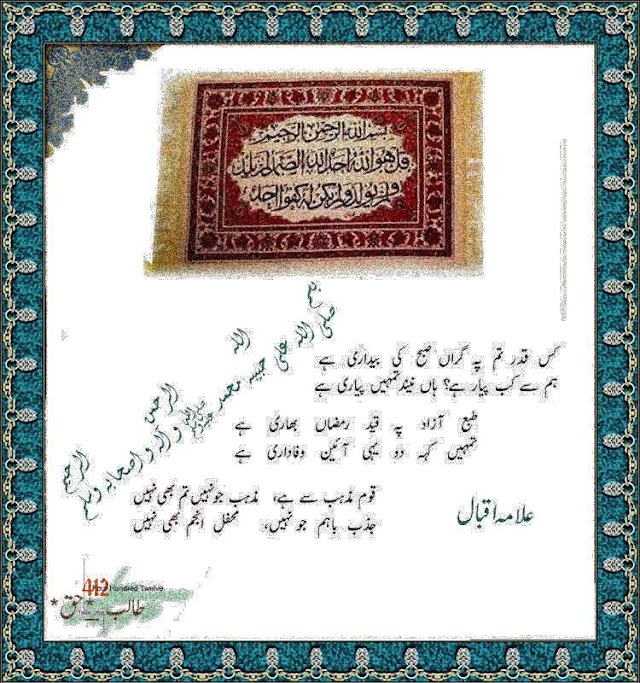 بسم الله الرحمن الرحيم
قل هو الله احد الله الصمد لم يلد
ولم يولد ولم يكن له كفوا احد
بسم الله الرحمن الرحيم
صلی اللہ علی حبیبہ محمد ﷺ و آلہ و اصحابہ وسلم
کس قدر تم پہ گراں صبح کی بیداری ہے
ہم سے کب پیار ہے؟ ہاں نیند تمہیں پیاری ہے
طبع آزاد پہ قید رمضاں بھاری ہے
تمہیں کہہ دو یہی آئین وفاداری ہے
قوم مذہب سے ہے، مذہب جو نہیں تم بھی نہیں
جذب باہم جو نہیں، محفل انجم بھی نہیں
علامہ اقبال
412
Four Hundred Twelve
* طالب حق *